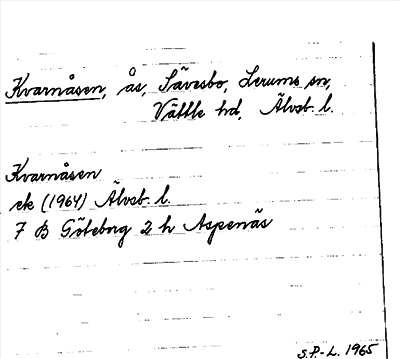 Kvarnåsen, ås, Sävesbo, Lerums sn,
Vättle hd, Älvsb. l.
Kvarnåsen
ek (1964) Älvsb. l.
7 B Göteborg 2 h Aspenäs
S.P.-L. 1965